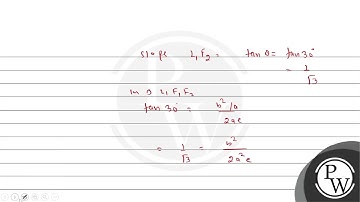 slope L₁F₂ = tan θ = tan 30°
= 1/√3
in Δ L₁F₁F₂
tan 30° = b²/a / 2ae
= 1/√3 = b²/2a²e
PW